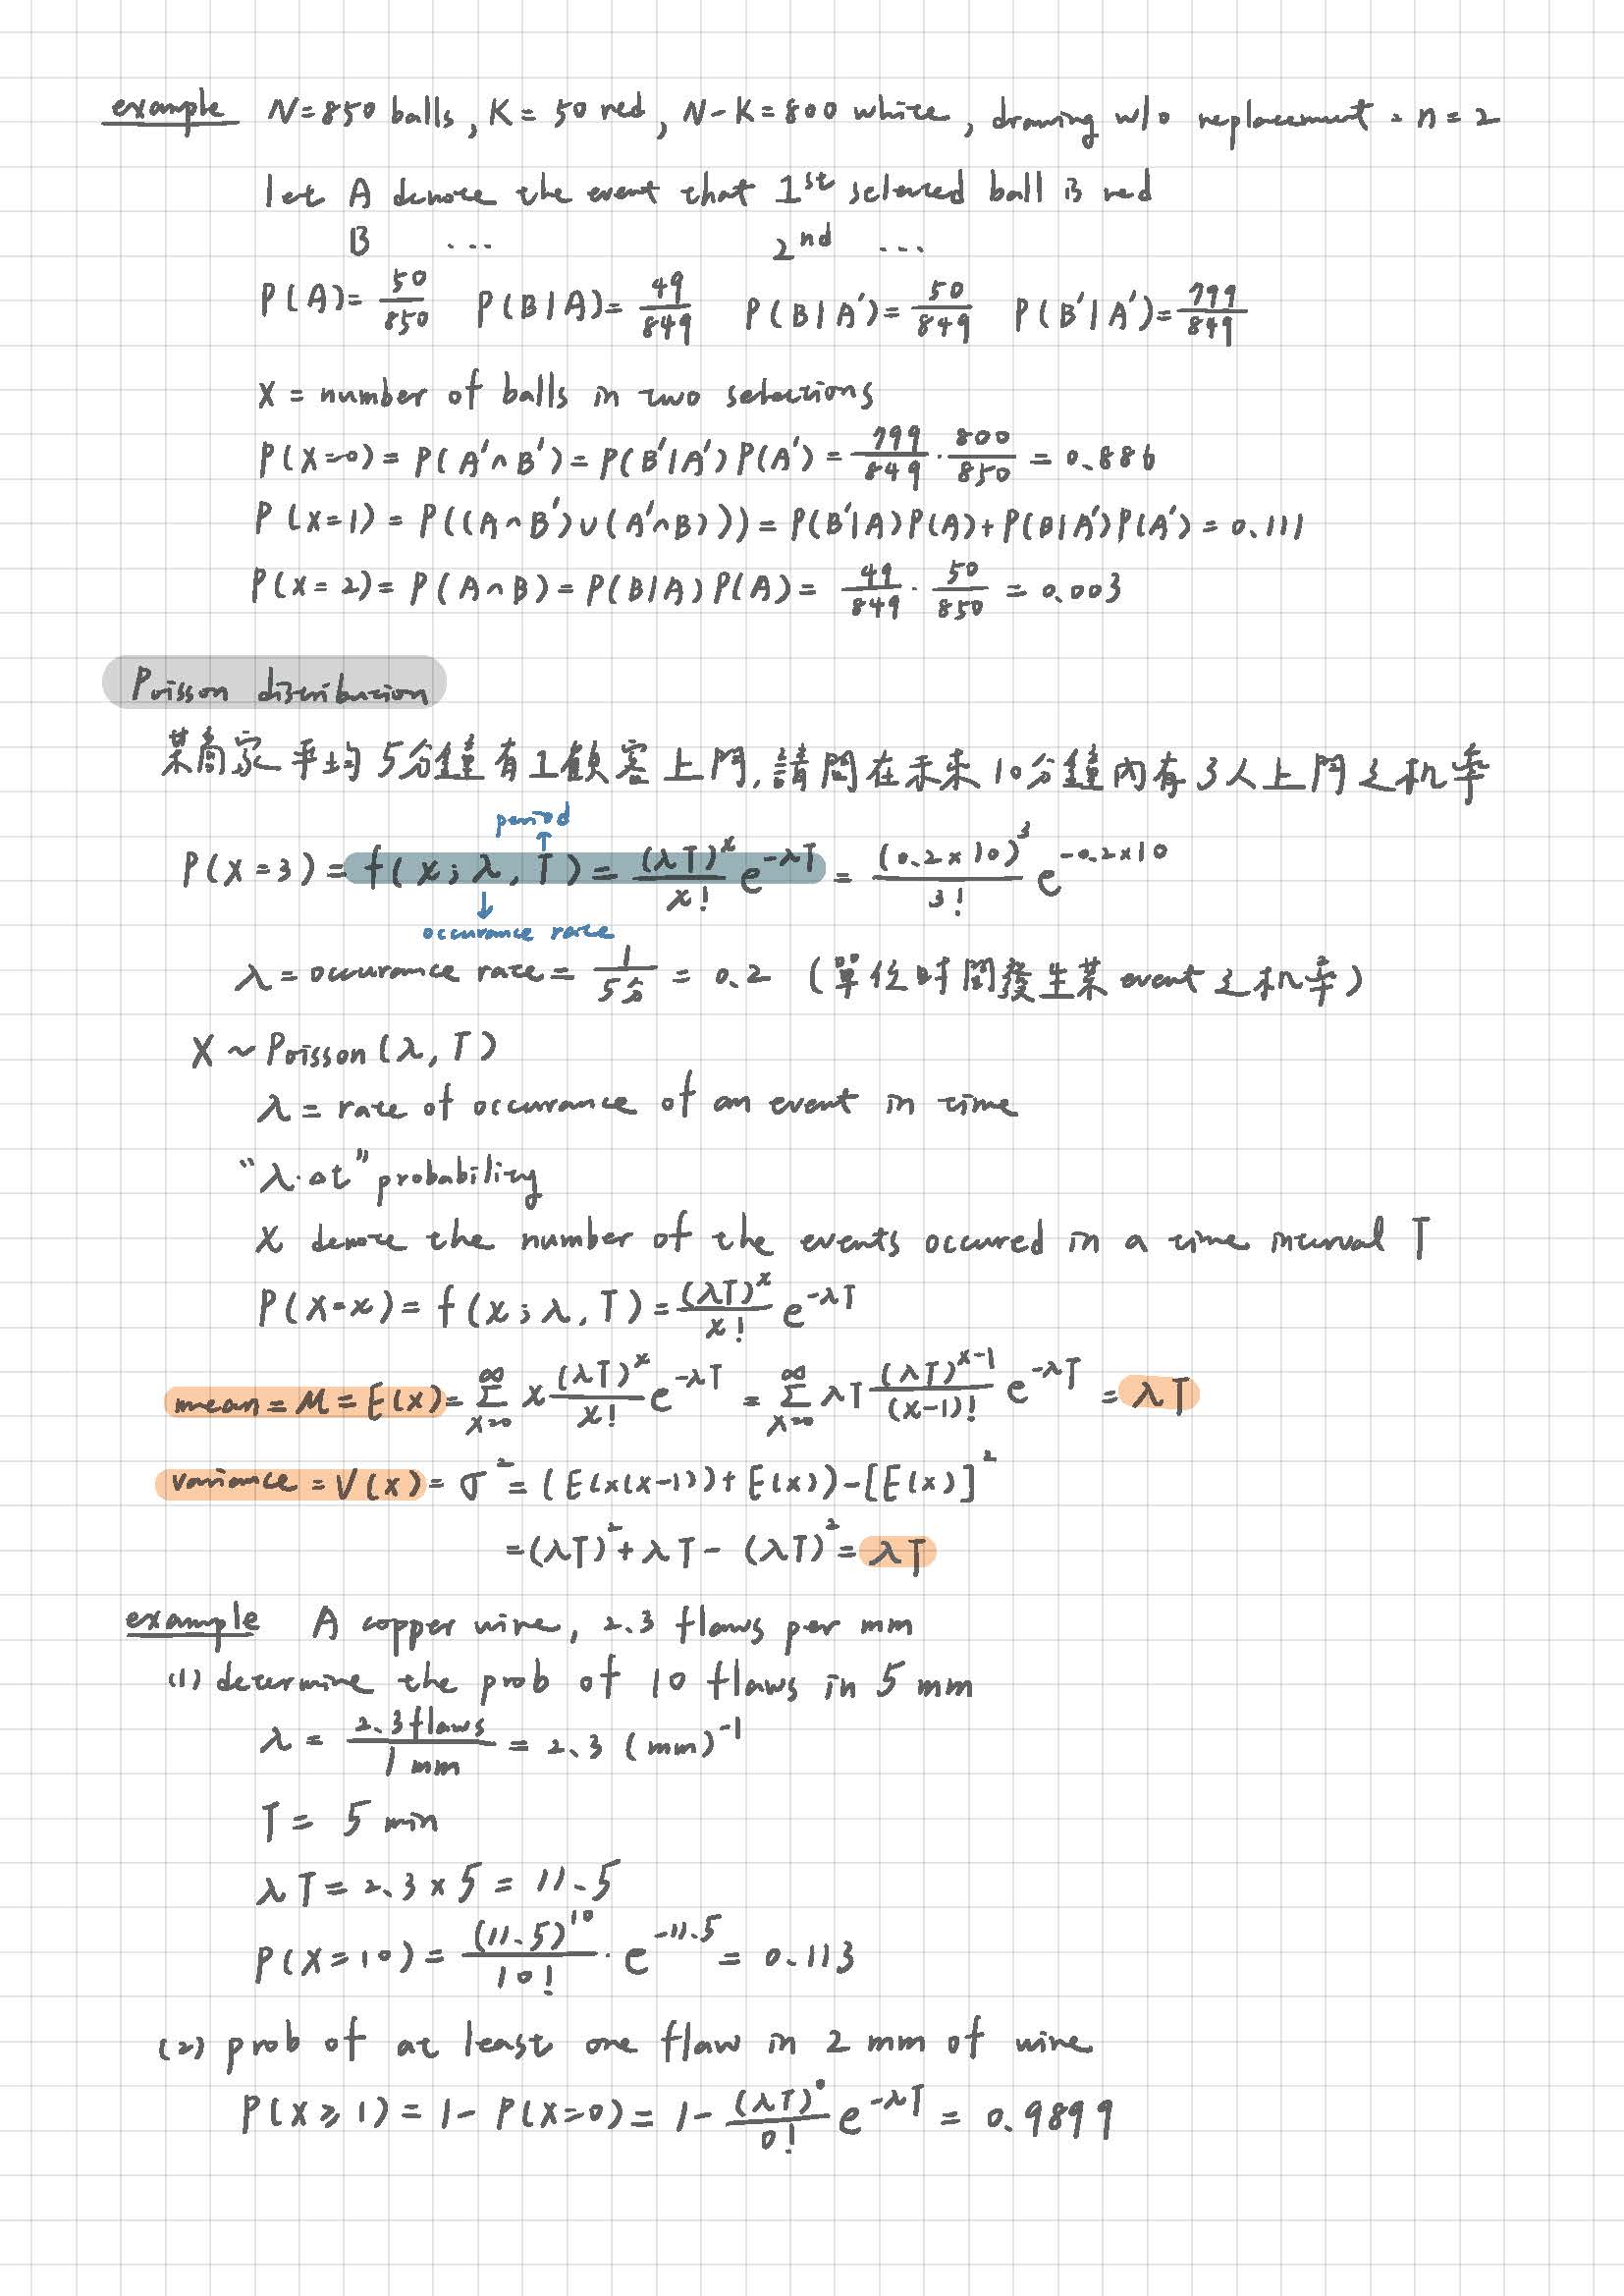 example N=850 balls, K=50 red, N-K=800 white, drawing w/o replacement = n=2
let A denote the event that 1st selected ball is red
B ... 2nd ...
P(A)=50/850 P(B|A)=49/849 P(B|A')=50/849 P(B'|A')=799/849
X = number of balls in two selections
P(X=0)=P(A'∩B')=P(B'|A')P(A')=799/849·800/850=0.886
P(X=1)=P((A∩B')∪(A'∩B)))=P(B'|A)P(A)+P(B|A')P(A')=0.111
P(X=2)=P(A∩B)=P(B|A)P(A)=49/849·50/850=0.003
Poisson distribution
某商家平均5分鐘有1顧客上門,請問在未來10分鐘內有3人上門之机率
period
P(X=3)=f(x;λ,T)=(λT)^x/x! e^-λT=(0.2×10)^3/3! e^-0.2×10
occurance rate
λ=occurance rate=1/5分=0.2 (單位時間發生某event之机率)
X~Poisson(λ,T)
λ=rate of occurance of an event in time
"λ·Δt" probability
X denote the number of the events occured in a time interval T
P(X=x)=f(x;λ,T)=(λT)^x/x! e^-λT
mean=M=E(x)=∑_{x=0}^∞ x (λT)^x/x! e^-λT=∑_{x=0}^∞ λT (λT)^{x-1}/(x-1)! e^-λT=λT
variance=V(x)=σ²=(E(x(x-1))+E(x))-[E(x)]²
=(λT)²+λT-(λT)²=λT
example A copper wire, 2.3 flaws per mm
(1) determine the prob of 10 flaws in 5 mm
λ=2.3flaws/1mm=2.3 (mm)^-1
T=5 min
λT=2.3×5=11.5
P(X=10)=(11.5)^10/10!·e^-11.5=0.113
(2) prob of at least one flaw in 2 mm of wire
P(X≥1)=1-P(X=0)=1-(λT)^0/0! e^-λT=0.9899